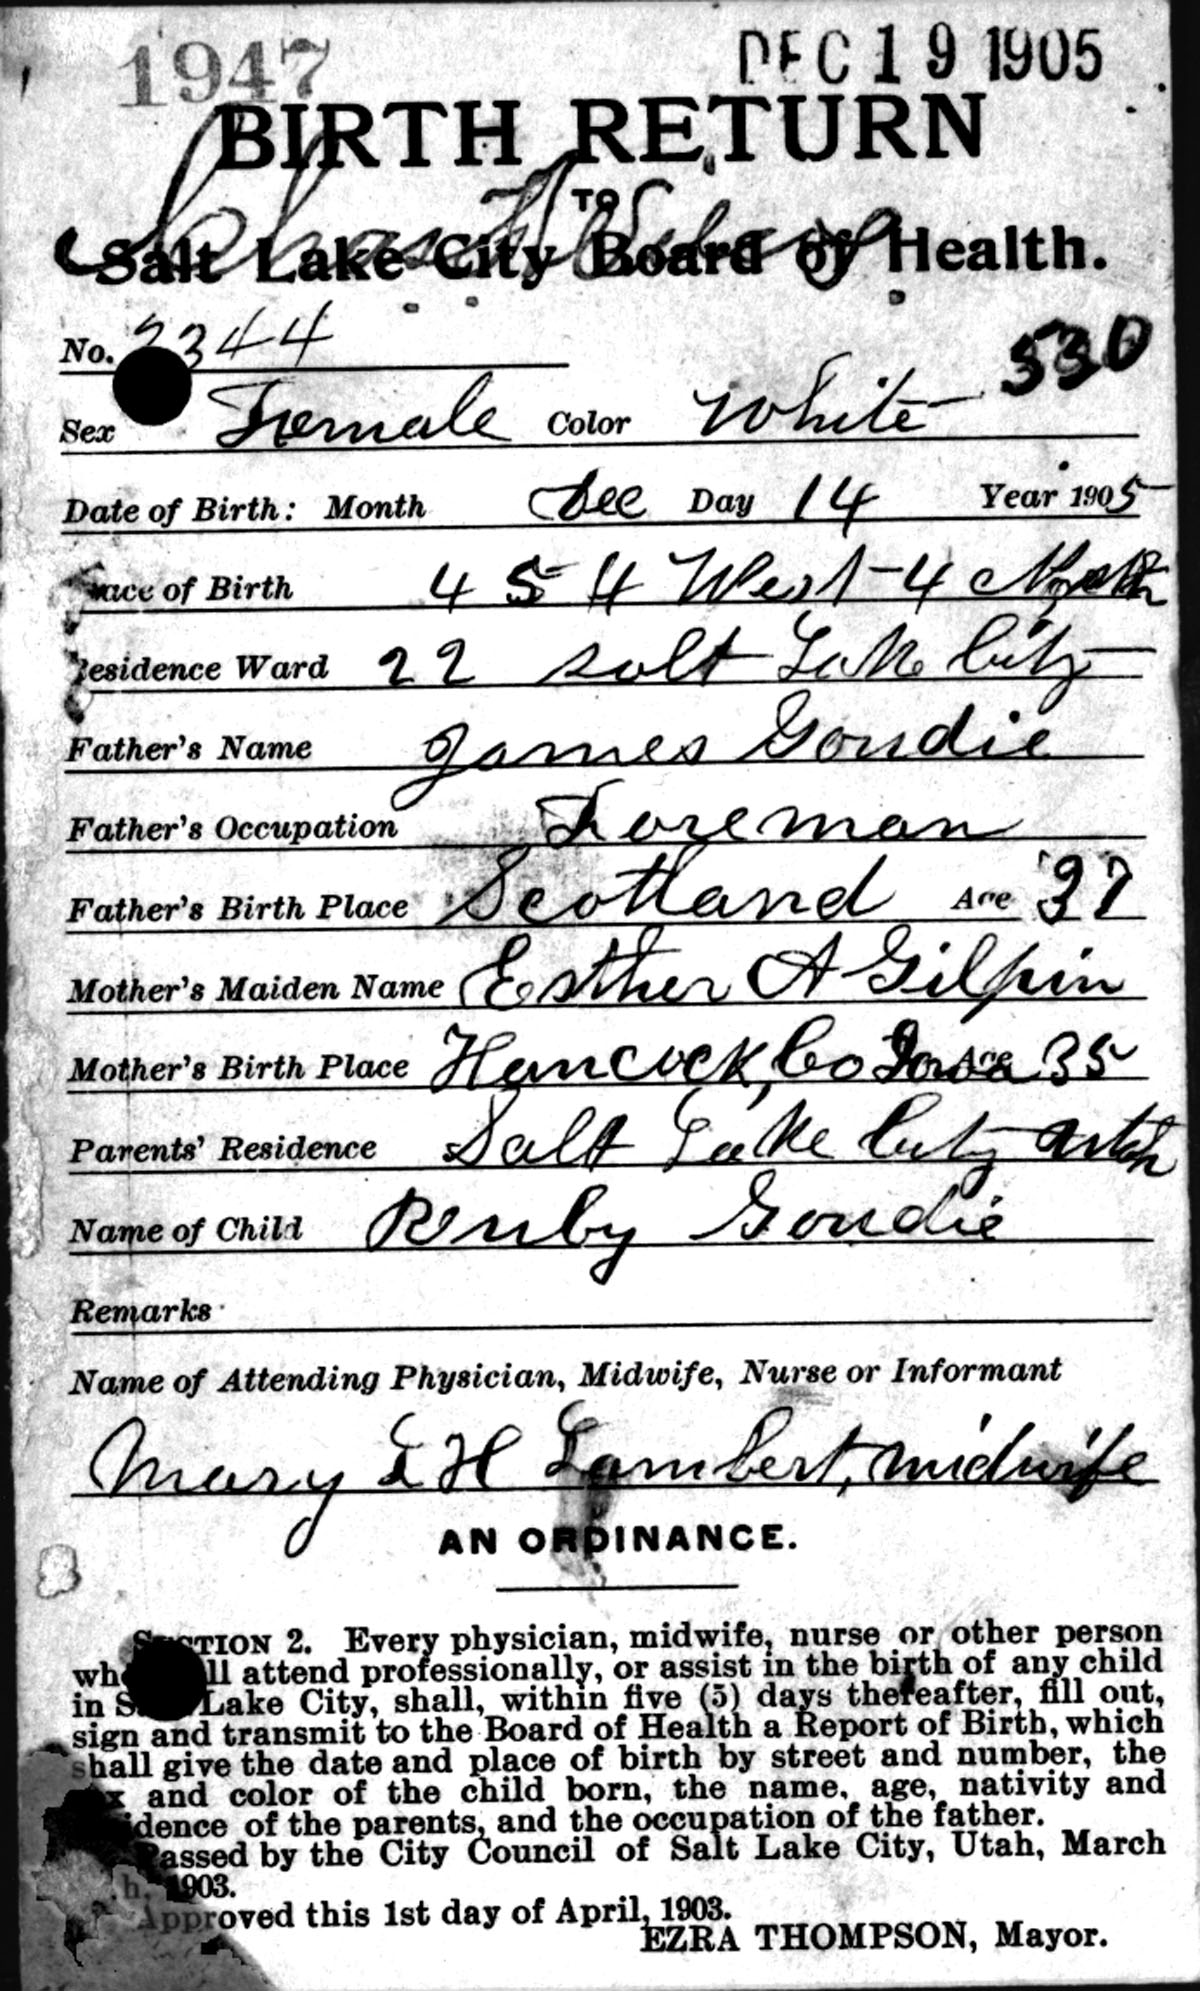 1947 DEC 19 1905
BIRTH RETURN
TO
Salt Lake City Board of Health.
No. 2344
530
Sex Female Color White
Date of Birth: Month Dec Day 14 Year 1905
ace of Birth 454 West 4 North
Residence Ward 22 Salt Lake City
Father's Name James Goudie
Father's Occupation Foreman
Father's Birth Place Scotland Age 37
Mother's Maiden Name Esther A Gilpin
Mother's Birth Place Hancock, Co Iowa Age 35
Parents' Residence Salt Lake City Utah
Name of Child Renby Goudie
Remarks
Name of Attending Physician, Midwife, Nurse or Informant
Mary L H Lambert, midwife
AN ORDINANCE.
SECTION 2. Every physician, midwife, nurse or other person
who ll attend professionally, or assist in the birth of any child
in S Lake City, shall, within five (5) days thereafter, fill out,
sign and transmit to the Board of Health a Report of Birth, which
shall give the date and place of birth by street and number, the
x and color of the child born, the name, age, nativity and
idence of the parents, and the occupation of the father.
Passed by the City Council of Salt Lake City, Utah, March
h, 1903.
Approved this 1st day of April, 1903.
EZRA THOMPSON, Mayor.